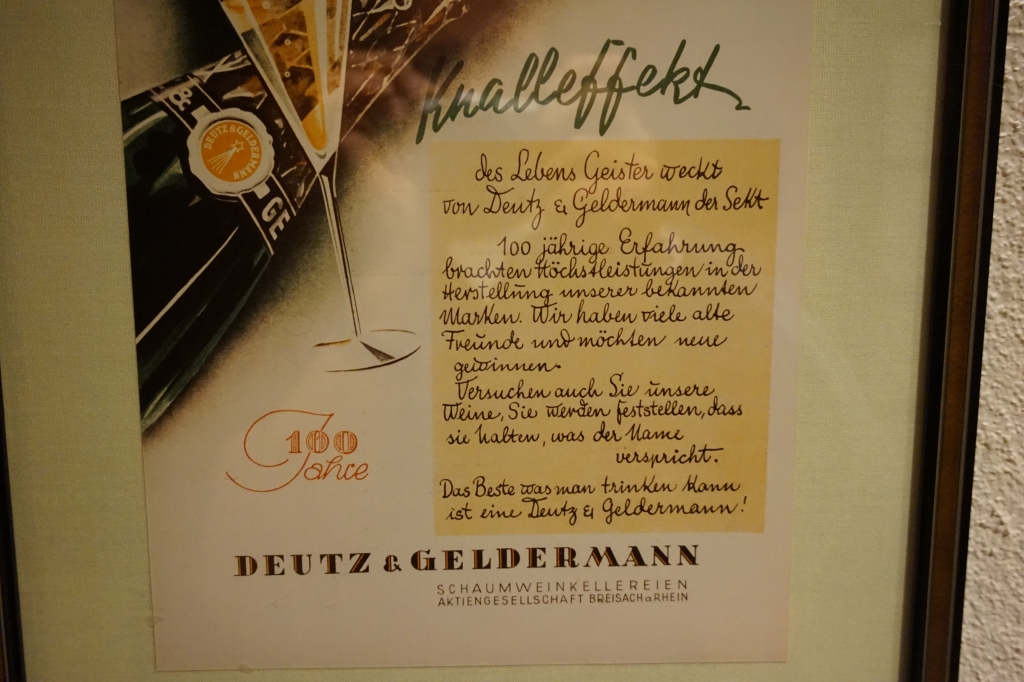 Knalleffekt
& 
DEUTZ & GELDERMANN
GE
des Lebens Geister weckt
von Deutz & Geldermann der Sekt
100 jährige Erfahrung
brachten Höchstleistungen in der
Herstellung unserer bekannten
Marken. Wir haben viele alte
Freunde und möchten neue
gewinnen.
Versuchen auch Sie unsere
Weine, Sie werden feststellen, dass
sie halten, was der Name
verspricht.
Das Beste was man trinken kann
ist eine Deutz & Geldermann!
100
Jahre
DEUTZ & GELDERMANN
SCHAUMWEINKELLEREIEN
AKTIENGESELLSCHAFT BREISACH a. RHEIN